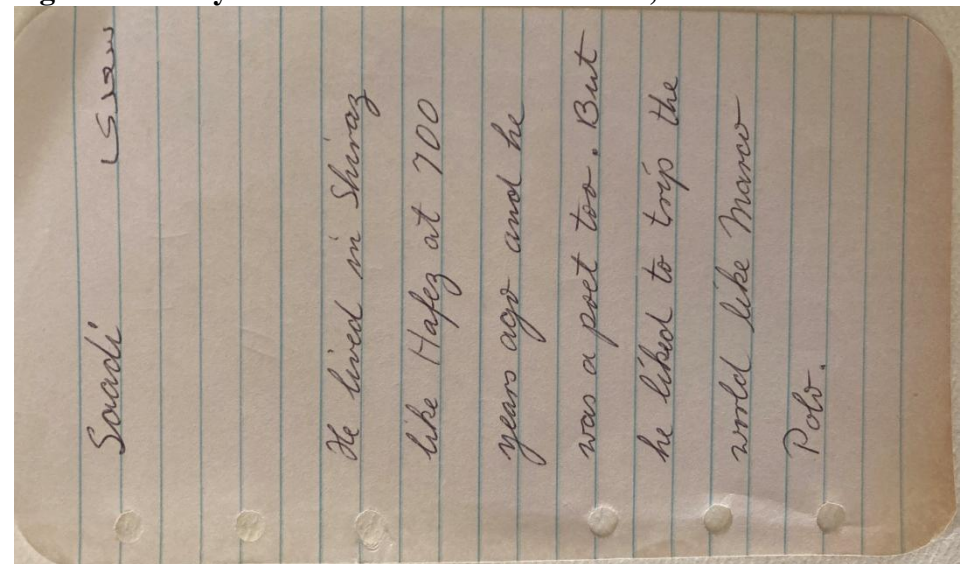 Saadi سعدی
He lived in Shiraz
like Hafez at 700
years ago and he
was a poet too. But
he liked to trip the
world like Marco
Polo.